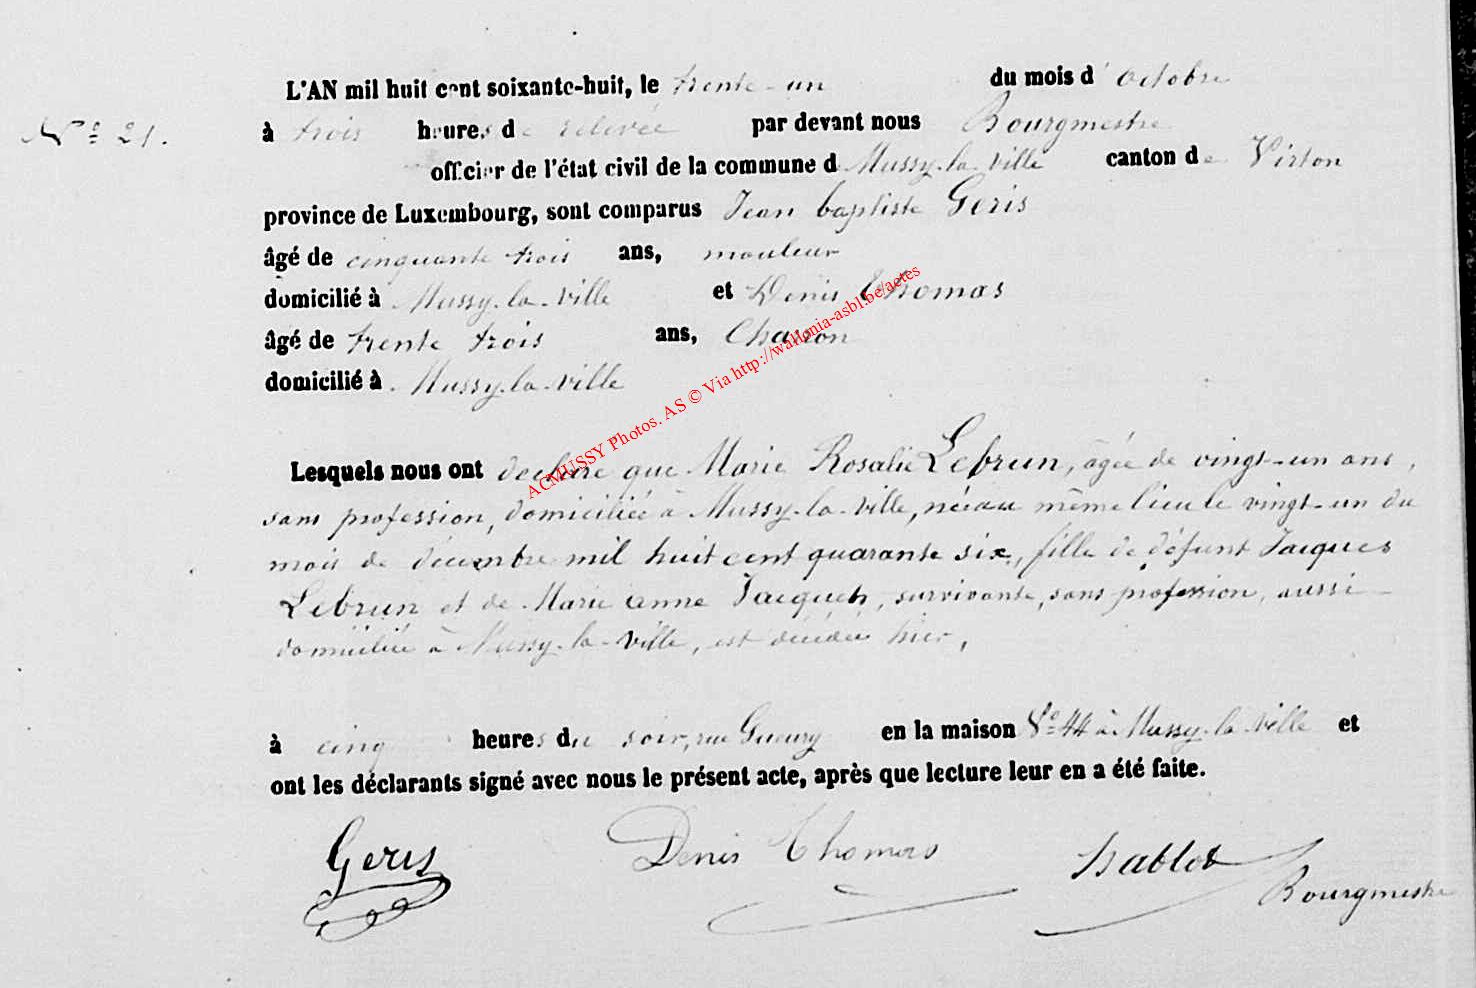 L'AN mil huit cent soixante-huit, le trente-un du mois d'octobre
N° 21. à trois heures de relevée par devant nous Bourgmestre
officier de l'état civil de la commune d Mussy-la-Ville canton de Virton
province de Luxembourg, sont comparus Jean baptiste Geris
âgé de cinquante trois ans, mouleur
domicilié à Mussy-la-Ville et Denis Thomas
âgé de trente trois ans, Charron
domicilié à Mussy-la-Ville
ACMUSSY Photos. AS © Via http://wallonia-asbl.be/actes
Lesquels nous ont déclaré que Marie Rosalie Lebrun, âgée de vingt-un ans,
sans profession, domiciliée à Mussy-la-Ville, née au même lieu le vingt-un du
mois de décembre mil huit cent quarante six, fille de défunt Jacques
Lebrun et de Marie anne Jacques, survivante, sans profession, aussi
domiciliée à Mussy-la-Ville, est décédée hier,
à cinq heures du soir, rue en la maison N° 44 à Mussy-la-Ville et
ont les déclarants signé avec nous le présent acte, après que lecture leur en a été faite.
Geris Denis Thomas Hablot
Bourgmestre